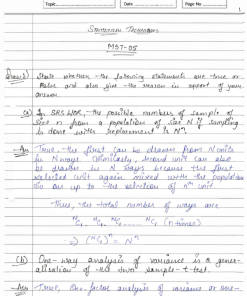 Topic
Date
Page No
1
Statistical Techniques
MST-05
Ques:1) State whether the following statements are true or
false and also give the reason in support of your
answer.
(a) In SRSWOR, the possible numbers of sample of
size n from a population of size N if sampling
is done with replacement is Nⁿ.
Ans True, the first can be drawn from N units
in N ways. Similarly, second unit can also
be drawn in N ways because the first
selected unit again mixed with the population
So on up to the selection of nth unit.
Thus, the total number of ways are
ᴺC₁ . ᴺC₁ . ᴺC₁ ...... ᴺC₁ (n times)
⇒ (ᴺC₁)ⁿ = Nⁿ
(b) One-way analysis of variance is a gene-
alisation of the two sample t-test.
Ans True, One-factor analysis of variance or one-